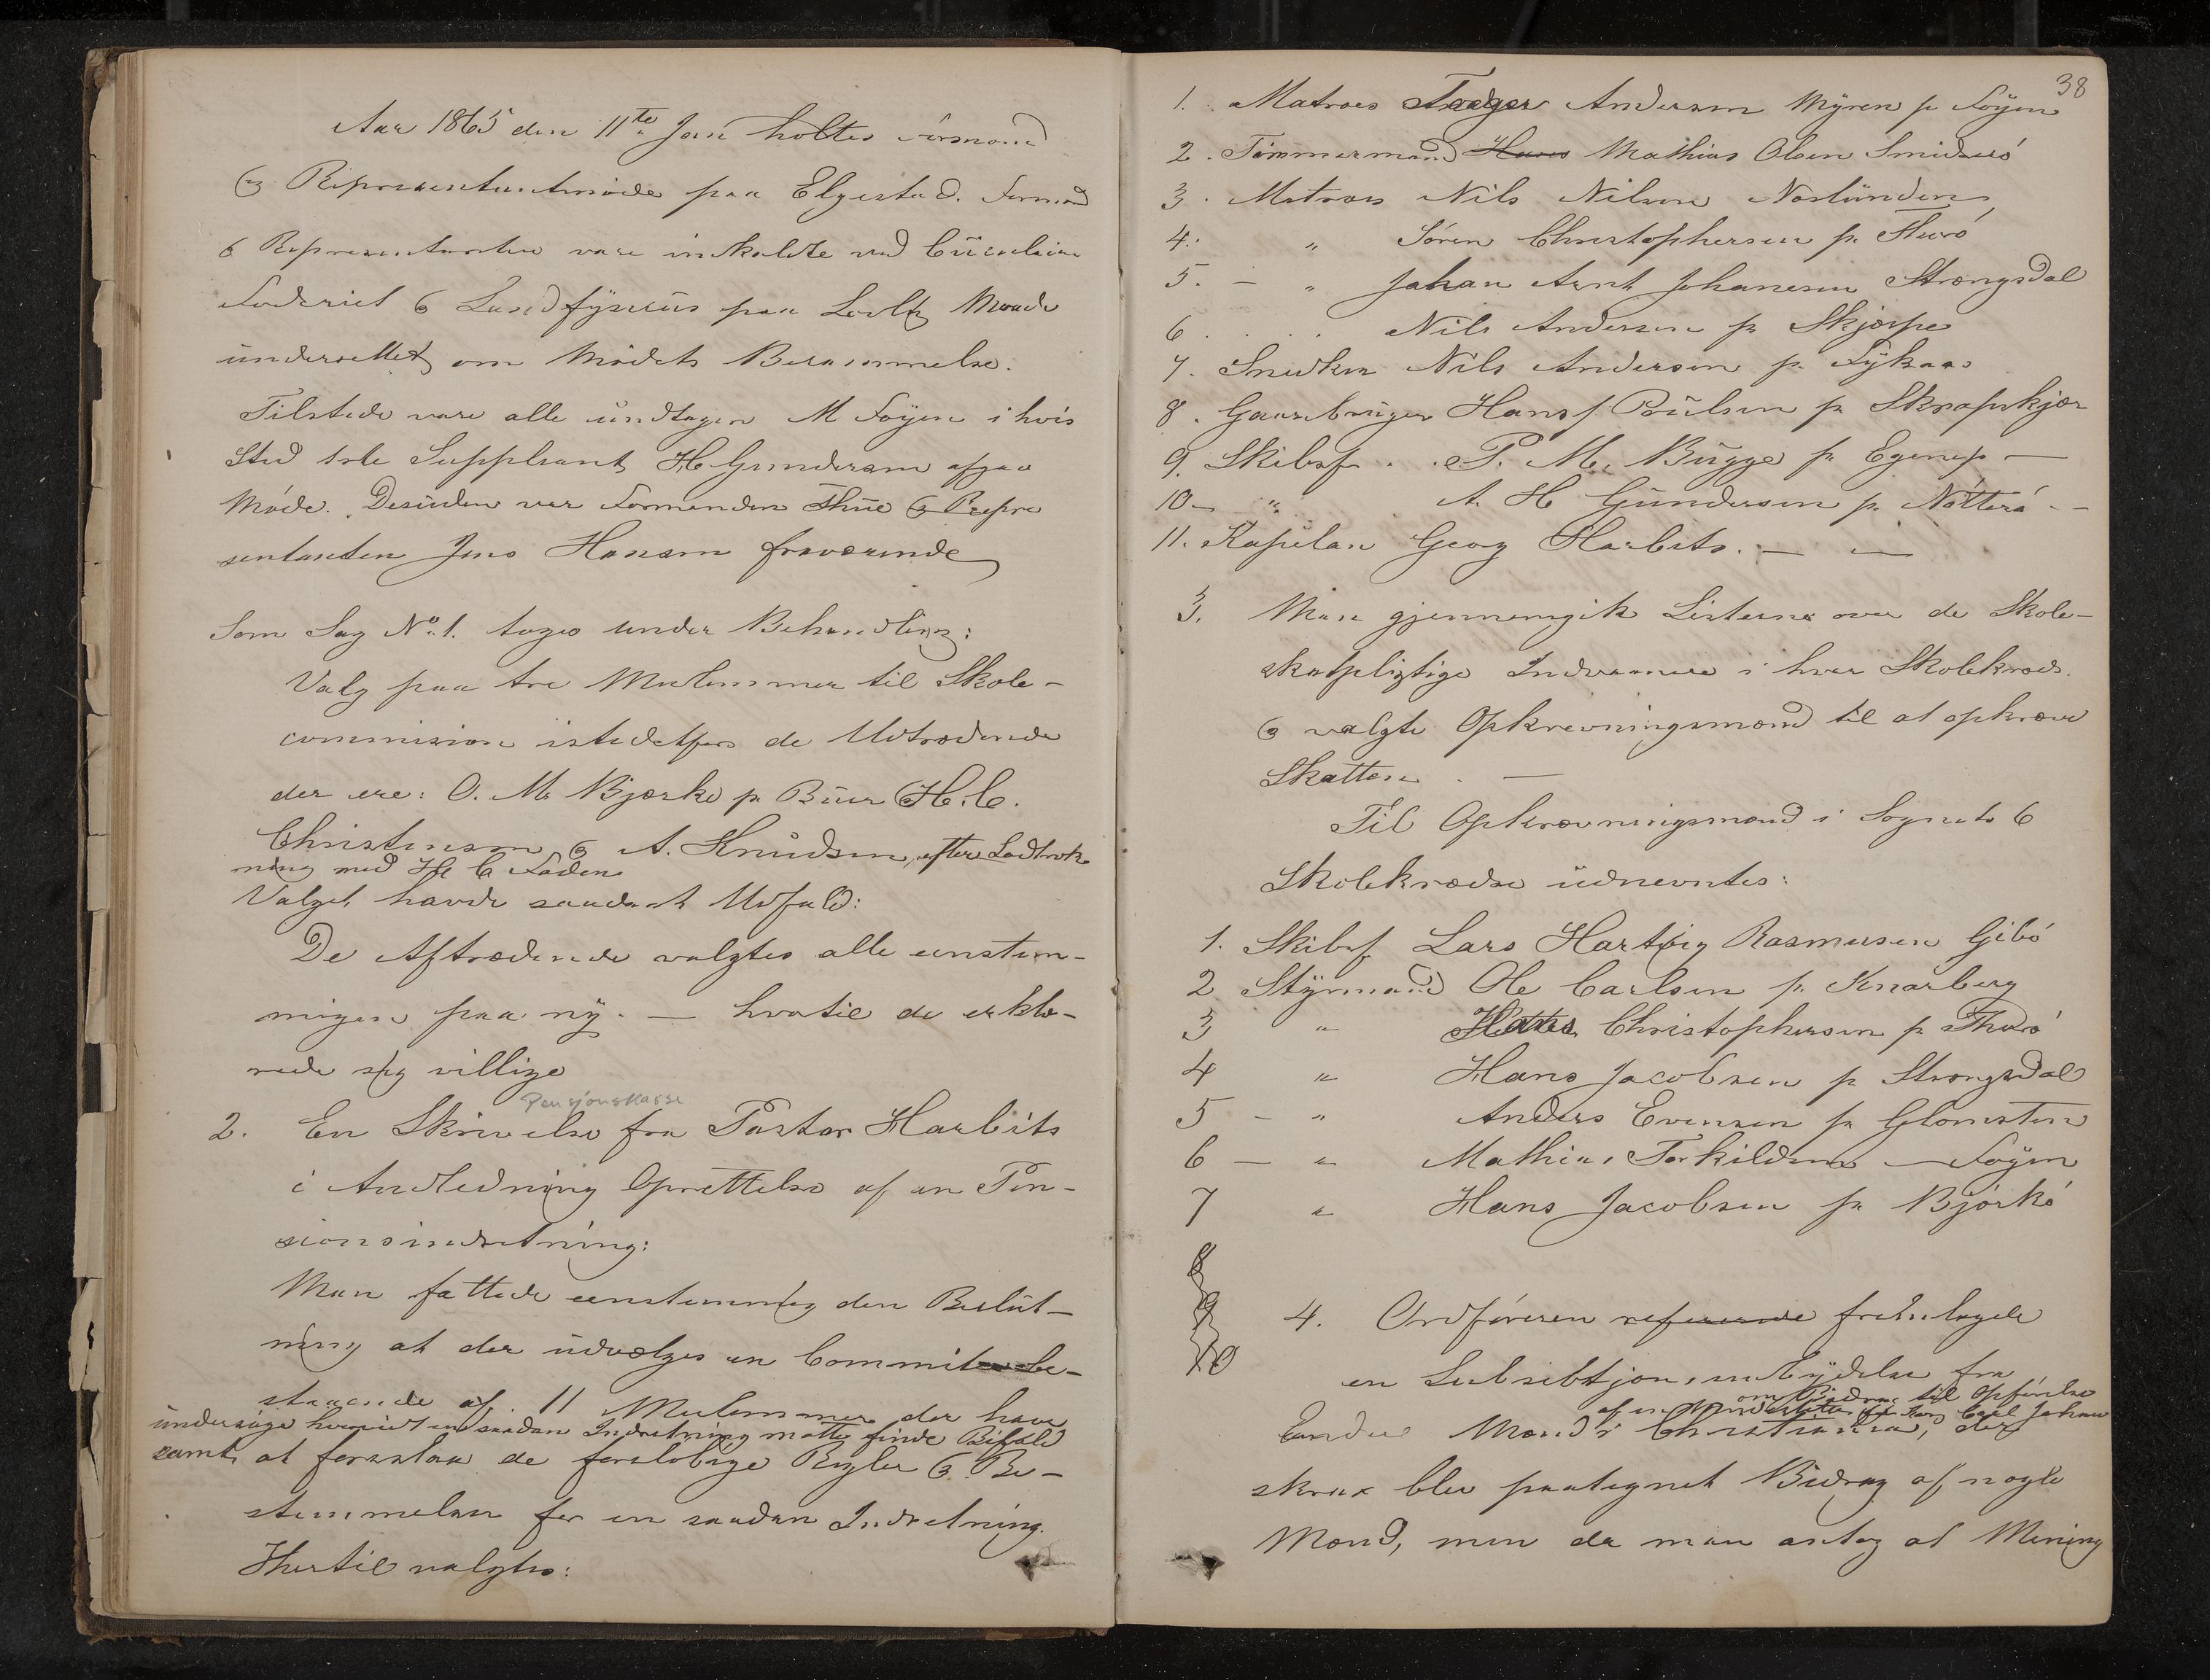 Aar 1865 den 11te Jan holtes Formænd
& Representantmøde paa Elgestad. Formænd
& Representanter vare indkaldte ved Circulaire
Foderiet & Landfysicus paa Lovlig Maade
underrettet om Mødets Berammelse.
Tilstede vare alle undtagen M Føyen i hvis
Sted 1ste Suppleant H Gundersen afgav
Møde. Desuden var Formanden Thue & Repre
sentanten Jens Hansen fraværende
Som Sag No 1. toges under Behandling:
Valg paa tre Medlemmer til Skole-
commision istedetfor de Udtrædende
der ere: O. M. Bjerke p. Buer H. C.
Christensen & A. Knudsen, efter Lodtræk
ning med H C Foden
Valget havde saadant Udfald:
De Aftrædende valgtes alle eenstem-
migen paa ny. — hvortil de erklæ-
rede sig villige
Pensjonskasse
2. En Skrivelse fra Pastor Harbits
i Anledning Oprettelse af en Pen-
sionsindretning:
Man fattede eenstemmig den Beslut-
ning at der udvælges en Commitee be-
staaende af 11 Medlemmer der have
undersøge hvorvidt en saadan Indretning matte finde Bifald
samt at foreslaa de foreløbige Regler & Be-
stemmelser for en saadan Indretning.
Hertil valgtes:
38
1. Matroes Andersen Myren p. Føyen
2. Tømmermand Hans Mathias Olsen Smidsrø
3. Matroes Nils Nilsen Noslunden
4. " Søren Christophersen p. Thurø
5. — " Johan Arnt Johanesen Strængsdal
6 . . . Nils Andersen p. Skjerpe
7. Snedker Nils Andersen p. Lykaas
8. Gaardbruger Hans J Poulsen p. Skrapekjær
9. Skibsf. . P. M. Bugge p. Egenes —
10 — " A. H Gundersen p. Nøtterø - -
11. Kapelan Georg Harbits. — —
3. Man gjennemgik Listerne over de Skole-
skatpligtige Indvaanere i hver Skolekreds.
& valgte Opkrævningsmænd til at opkræve
Skatten. —
Til Opkrævningsmænd i Sognets 6
Skolekredse udnevntes:
1. Skibsf Lars Hartvig Rasmusen Gibø
2 Styrmand Ole Carlsen p. Knarberg
3 " Christophersen p Thurø
4 " Hans Jacobsen p Strengsdal
5 — " Anders Evensen p. Glomsten
6 — " Mathias Torkildsen — Føyen
7 " Hans Jacobsen p. Bjørkø
8
9
10
4. Ordføreren refererede fremlagde
en Subsibtjons indbydelse fra
om Bidrag til Opførelse
Kong Carl Johan
Mænd i Christiania, der
strax blev paategnet Bidrag af nogle
Mænd, men da man antog at Mening